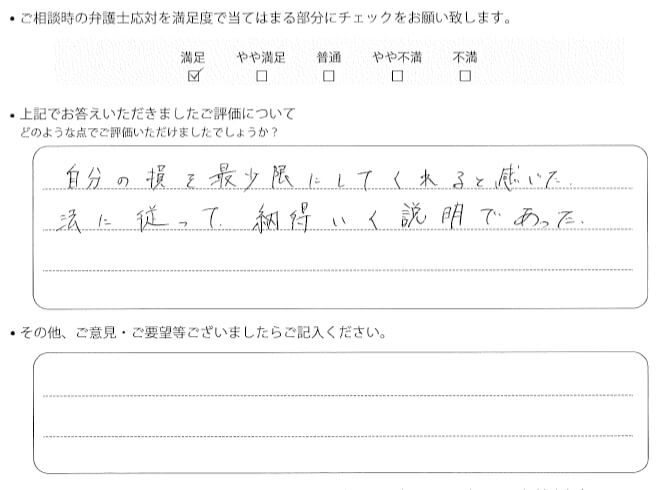 • ご相談時の弁護士応対を満足度で当てはまる部分にチェックをお願い致します。
満足 やや満足 普通 やや不満 不満
☑ ☐ ☐ ☐ ☐
• 上記でお答えいただきましたご評価について
どのような点でご評価いただけましたでしょうか？
自分の損を最少限にしてくれると感じた.
法に従って. 納得いく説明であった.
• その他、ご意見・ご要望等ございましたらご記入ください。